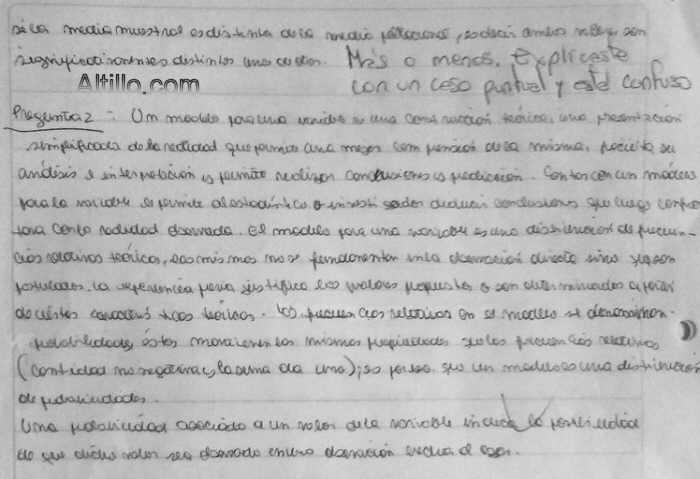 si la media muestral es distinta de la media poblacional, es decir ambos valores son
significativamente distintos uno de otro. Más o menos. Explicaste
Altillo.com con un caso puntual y está confuso
Pregunta 2: Un modelo para una variable es una construcción teórica, una presentación
simplificada de la realidad que permite una mejor comprensión de la misma, facilita su
análisis e interpretación y permite realizar conclusiones y predicción. Contar con un modelo
para la variable le permite al estadístico o investigador deducir conclusiones que luego
para cierta realidad observada. El modelo para una variable es una distribución de frecuen-
cias relativas teóricas, las mismas no se fundamentan en la observación directa sino que son
postuladas. La experiencia previa justifica los valores propuestos o son determinados a partir
de ciertas características teóricas. Las frecuencias relativas en el modelo se denominan
probabilidades, éstas mantienen las mismas propiedades que las frecuencias relativas
(cantidad no negativa y la suma da uno); es por eso que un modelo es una distribución
de probabilidades.
Una probabilidad asociada a un valor de la variable indica la posibilidad
de que dicho valor sea observado en una observación hecha al azar.